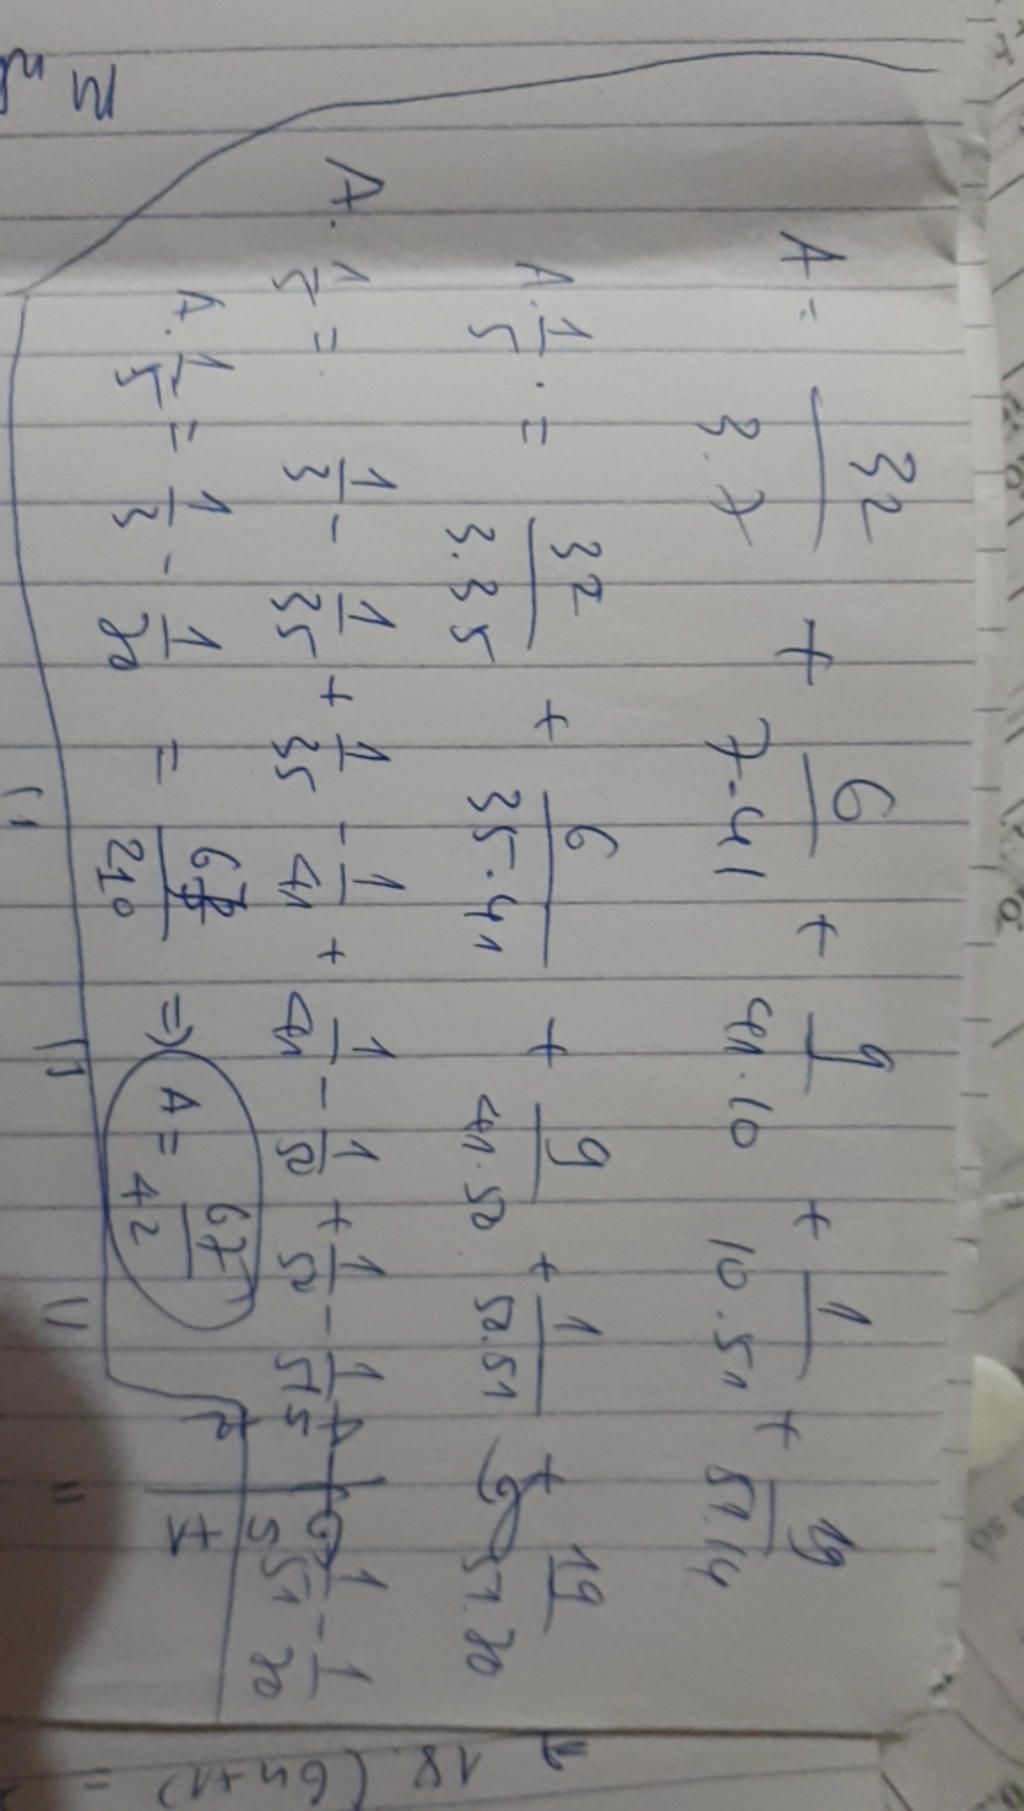 A = 32/3.7 + 6/7.41 + 9/41.10 + 1/10.51 + 19/51.14
A.1/5 = 32/3.35 + 6/35.41 + 9/41.50 + 1/50.51 + 19/51.70
A.1/5 = 1/3 - 1/35 + 1/35 - 1/41 + 1/41 - 1/50 + 1/50 - 1/51 + 1/51 - 1/70
A.1/5 = 1/3 - 1/70 = 67/210 => A = 67/42
18.(6n+1) =